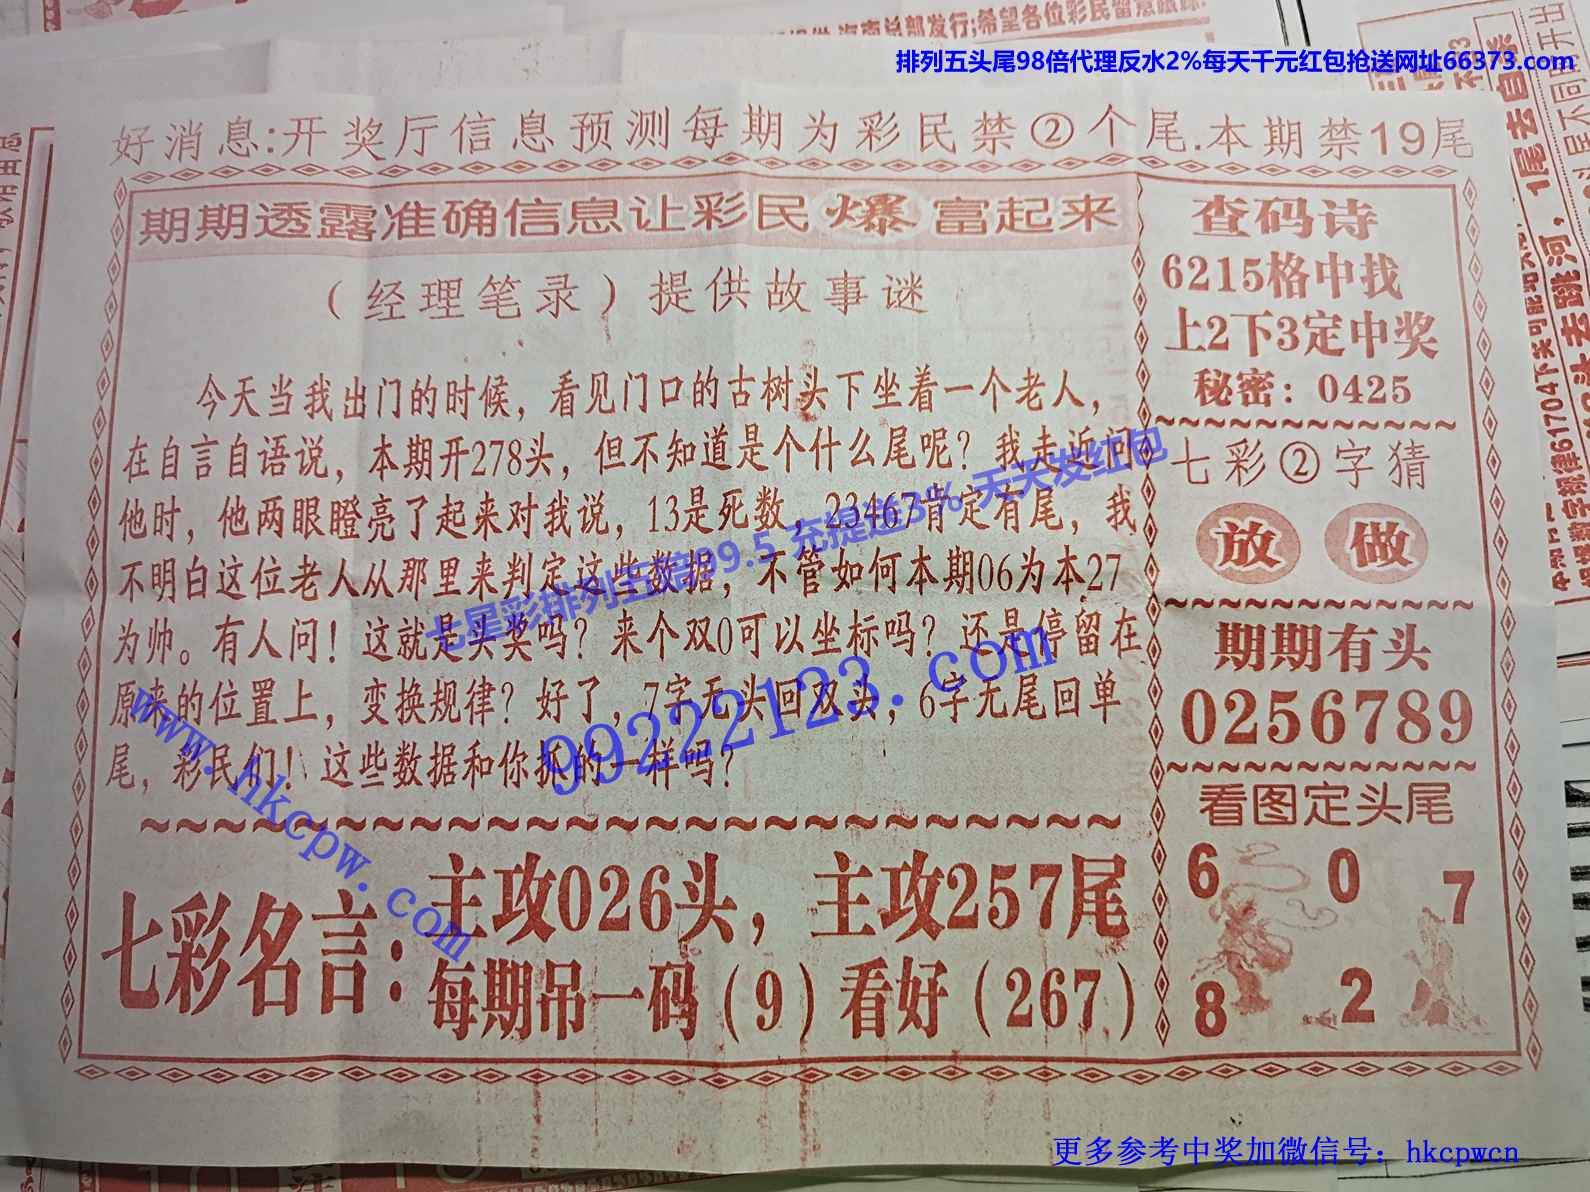 海南总部发行;希望各位彩民留意跟踪
排列五头尾98倍代理反水2%每天千元红包抢送网址66373.com
好消息:开奖厅信息预测每期为彩民禁②个尾.本期禁19尾
期期透露准确信息让彩民爆富起来
（经理笔录）提供故事谜
今天当我出门的时候，看见门口的古树头下坐着一个老人，
在自言自语说，本期开278头，但不知道是个什么尾呢？我走近问
他时，他两眼瞪亮了起来对我说，13是死数，23467肯定有尾，我
不明白这位老人从那里来判定这些数据，不管如何本期06为本27
为帅。有人问！这就是头奖吗？来个双0可以坐标吗？还是停留在
原来的位置上，变换规律？好了，7字无头回双头，6字无尾回单
尾，彩民们！这些数据和你抓的一样吗？
七彩名言:
主攻026头，主攻257尾
每期吊一码（9）看好（267）
查码诗
6215格中找
上2下3定中奖
秘密：0425
七彩②字猜
放 做
期期有头
0256789
看图定头尾
6 0 7
8 2
七星彩排列五倍99.5 充提送3% 天天发红包
99222123.com
www.hkcpw.com
更多参考中奖加微信号：hkcpwcn
1尾去跳河，